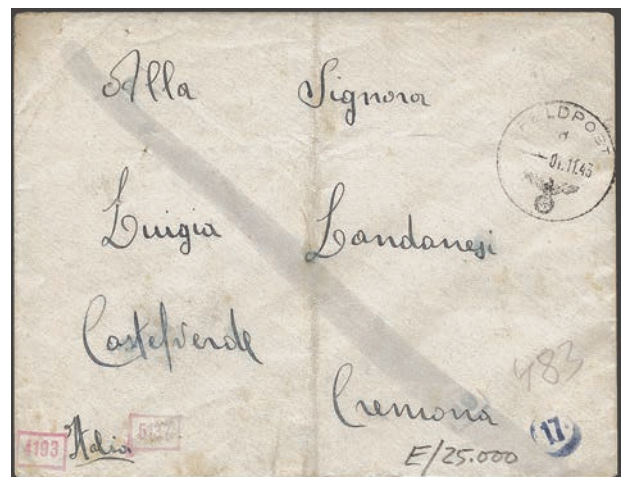 Alla Signora
FELDPOST
d
01.11.43
Luigia Landanesi
Castelverde
483
Cremona
17
4193 Italia
E/25.000